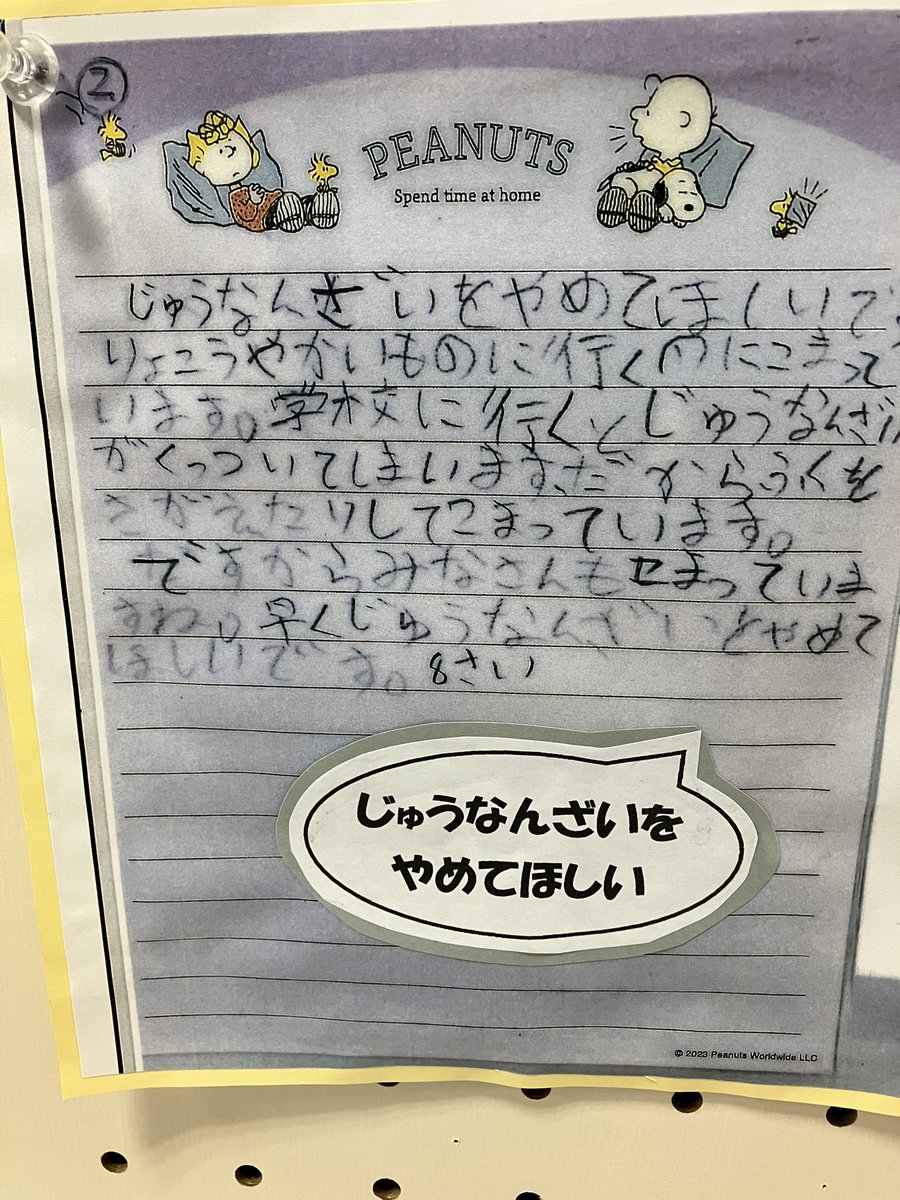 ②
PEANUTS
Spend time at home
じゅうなんざいをやめてほしいで
りょこうやかいものに行く時にこまって
います。学校に行くとじゅうなんざい
がくっついてしまいます、だからふくを
きがえたりしてこまっています。
ですからみなさんもこまっていま
すね。早くじゅうなんざいをやめて
ほしいです。8さい
じゅうなんざいを
やめてほしい
© 2023 Peanuts Worldwide LLC